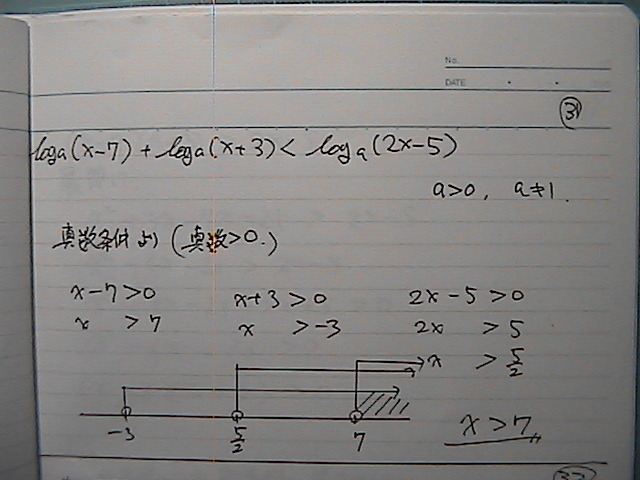 No.
DATE
③①
logₐ(x-7) + logₐ(x+3) < logₐ(2x-5)
a>0, a≠1.
真数条件より (真数>0.)
x-7>0 x+3>0 2x-5>0
x >7 x >-3 2x >5
x > 5/2
-3 5/2 7
x>7